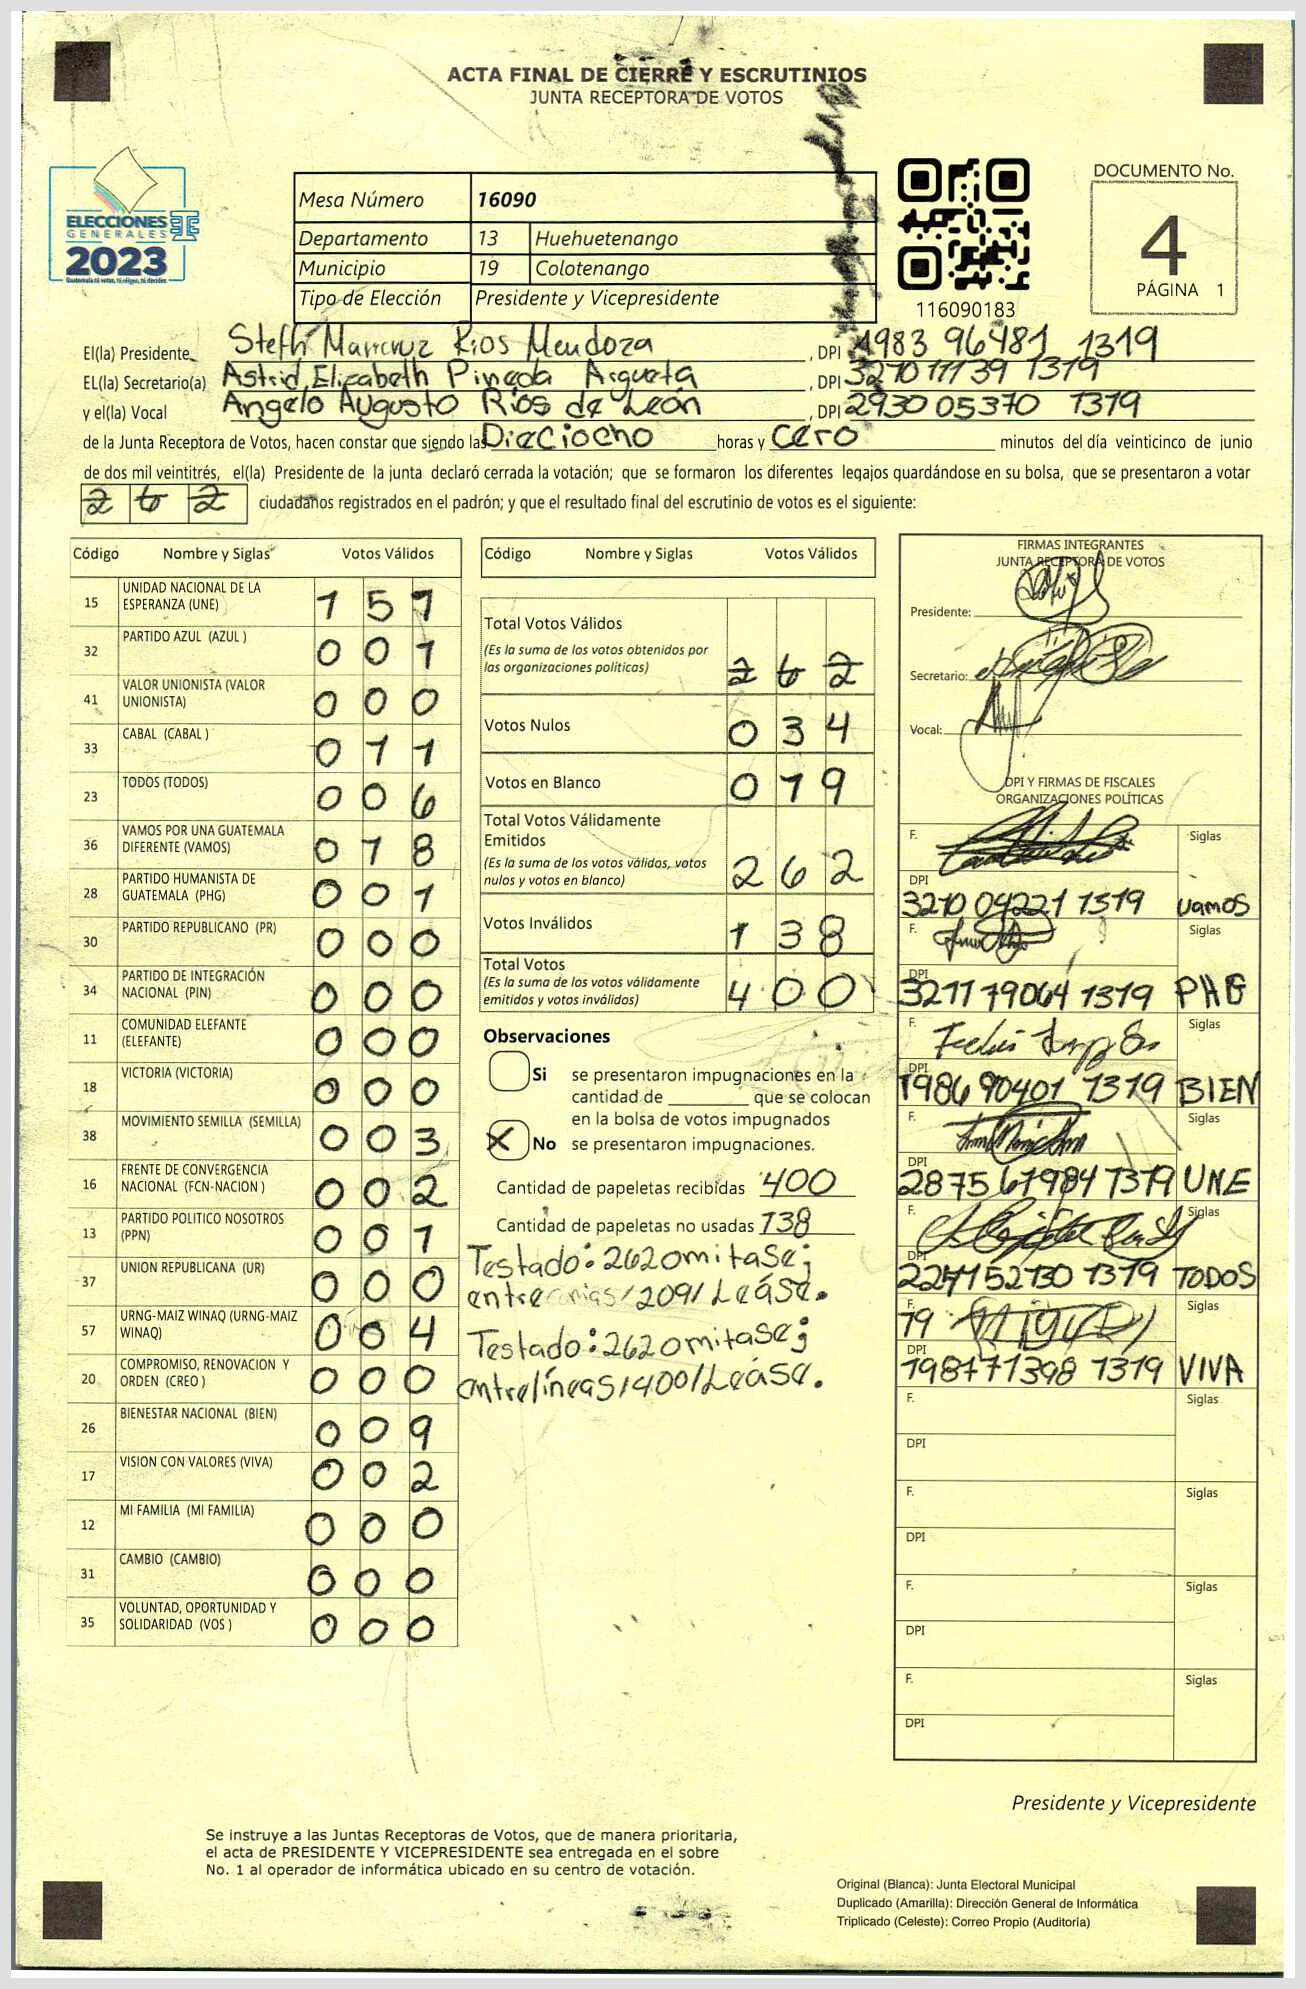 ACTA FINAL DE CIERRE Y ESCRUTINIOS
JUNTA RECEPTORA DE VOTOS
ELECCIONES
GENERALES
2023
Guatemala tú votas, tú eliges, tú decides
Mesa Número 16090
Departamento 13 Huehuetenango
Municipio 19 Colotenango
Tipo de Elección Presidente y Vicepresidente
116090183
DOCUMENTO No.
4
PÁGINA 1
El(la) Presidente Rios Mendoza , DPI 1983 96481 1319
EL(la) Secretario(a) Astrid Elizabeth Pineda Argueta , DPI 3210 11139 1319
y el(la) Vocal Angelo Augusto Ríos de León , DPI 2930 05370 1319
de la Junta Receptora de Votos, hacen constar que siendo las Dieciocho horas y Cero minutos del día veinticinco de junio
de dos mil veintitrés, el(la) Presidente de la junta declaró cerrada la votación; que se formaron los diferentes legajos quardándose en su bolsa, que se presentaron a votar
2 6 2 ciudadanos registrados en el padrón; y que el resultado final del escrutinio de votos es el siguiente:
Código Nombre y Siglas Votos Válidos
15 UNIDAD NACIONAL DE LA ESPERANZA (UNE) 1 5 1
32 PARTIDO AZUL (AZUL ) 0 0 1
41 VALOR UNIONISTA (VALOR UNIONISTA) 0 0 0
33 CABAL (CABAL ) 0 1 1
23 TODOS (TODOS) 0 0 6
36 VAMOS POR UNA GUATEMALA DIFERENTE (VAMOS) 0 1 8
28 PARTIDO HUMANISTA DE GUATEMALA (PHG) 0 0 1
30 PARTIDO REPUBLICANO (PR) 0 0 0
34 PARTIDO DE INTEGRACIÓN NACIONAL (PIN) 0 0 0
11 COMUNIDAD ELEFANTE (ELEFANTE) 0 0 0
18 VICTORIA (VICTORIA) 0 0 0
38 MOVIMIENTO SEMILLA (SEMILLA) 0 0 3
16 FRENTE DE CONVERGENCIA NACIONAL (FCN-NACION ) 0 0 2
13 PARTIDO POLITICO NOSOTROS (PPN) 0 0 1
37 UNION REPUBLICANA (UR) 0 0 0
57 URNG-MAIZ WINAQ (URNG-MAIZ WINAQ) 0 0 4
20 COMPROMISO, RENOVACION Y ORDEN (CREO ) 0 0 0
26 BIENESTAR NACIONAL (BIEN) 0 0 9
17 VISION CON VALORES (VIVA) 0 0 2
12 MI FAMILIA (MI FAMILIA) 0 0 0
31 CAMBIO (CAMBIO) 0 0 0
35 VOLUNTAD, OPORTUNIDAD Y SOLIDARIDAD (VOS ) 0 0 0
Código Nombre y Siglas Votos Válidos
Total Votos Válidos
(Es la suma de los votos obtenidos por
las organizaciones políticas) 2 6 2
Votos Nulos 0 3 4
Votos en Blanco 0 1 9
Total Votos Válidamente
Emitidos
(Es la suma de los votos válidos, votos
nulos y votos en blanco) 2 6 2
Votos Inválidos 1 3 8
Total Votos
(Es la suma de los votos válidamente
emitidos y votos inválidos) 4 0 0
Observaciones
Si se presentaron impugnaciones en la
cantidad de ________ que se colocan
en la bolsa de votos impugnados
X No se presentaron impugnaciones.
Cantidad de papeletas recibidas 400
Cantidad de papeletas no usadas 138
Testado: 262 omitase;
/209/ Leáse.
Testado: 262 omitase;
entrelíneas /400/ Leáse.
FIRMAS INTEGRANTES
JUNTA RECEPTORA DE VOTOS
Presidente:
Secretario:
Vocal:
DPI Y FIRMAS DE FISCALES
ORGANIZACIONES POLÍTICAS
F. Siglas
DPI
3210 09221 1319 Vamos
F. Siglas
DPI
3211 79064 1319 PHG
F. Siglas
DPI
1986 90401 1319 BIEN
F. Siglas
DPI
2875 67984 1319 UNE
F. Siglas
DPI
1319 TODOS
F. Siglas
79
DPI
1319 VIVA
F. Siglas
DPI
F. Siglas
DPI
F. Siglas
DPI
F. Siglas
DPI
Presidente y Vicepresidente
Se instruye a las Juntas Receptoras de Votos, que de manera prioritaria,
el acta de PRESIDENTE Y VICEPRESIDENTE sea entregada en el sobre
No. 1 al operador de informática ubicado en su centro de votación.
Original (Blanca): Junta Electoral Municipal
Duplicado (Amarilla): Dirección General de Informática
Triplicado (Celeste): Correo Propio (Auditoría)